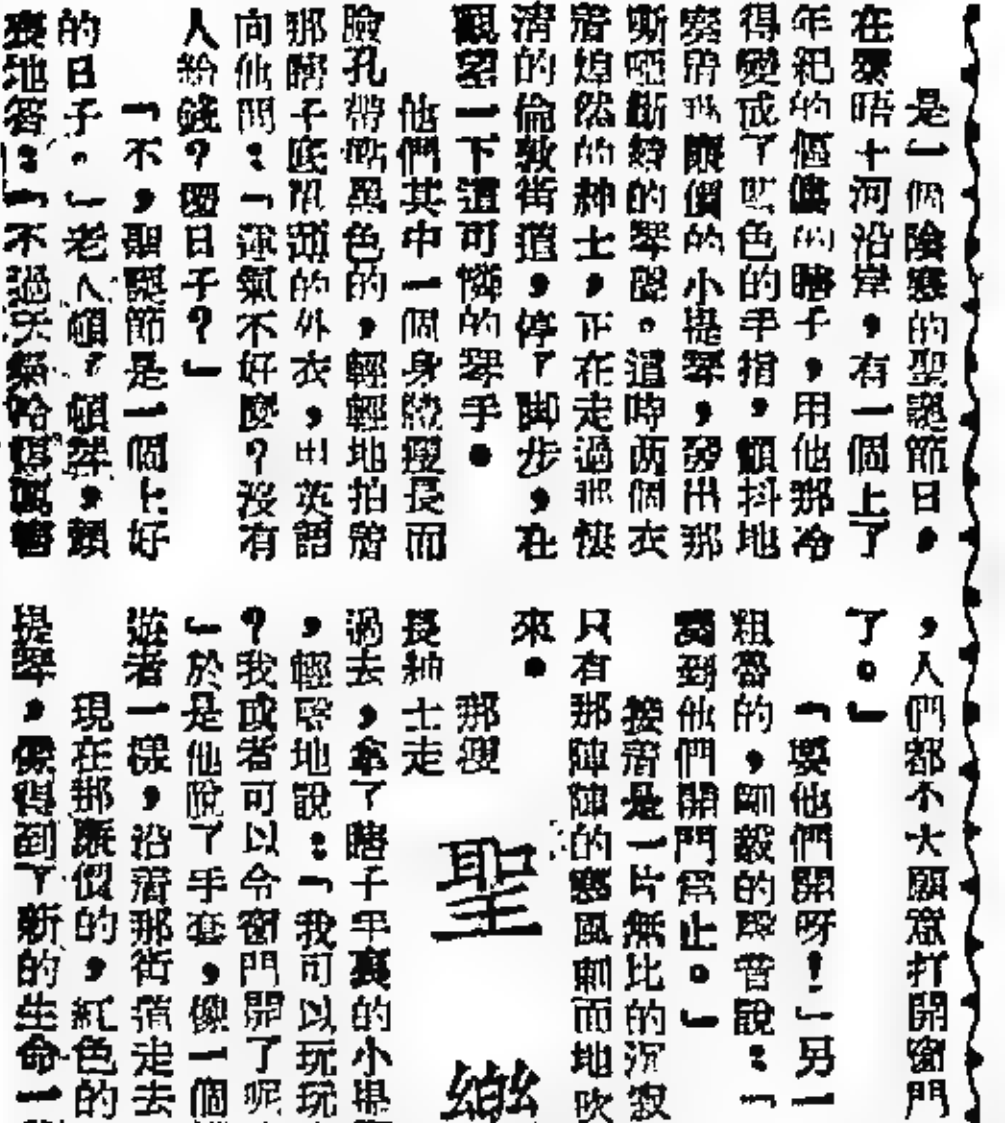 是一個陰寒的聖誕節日，
在泰晤士河沿岸，有一個上了
年紀的傴僂的瞎子，用他那冷
得變成了紅色的手指，顫抖地
奏着廉價的小提琴，發出那
嘶啞斷續的琴聲。這時兩個衣
著煌然的紳士，正在走過那悽
清的倫敦街道，停了脚步，在
觀望一下這可憐的琴手。
他們其中一個身段瘦長而
臉孔帶點黑色的，輕輕地拍着
那瞎子底單薄的外衣，出英語
向他問：「運氣不好麼？沒有
人給錢？壞日子？」
「不，聖誕節是一個上好
的日子。」老人頓了頓，頹
喪地答：「不過天氣
，人們都不大願意打開窗門
了。」
「要他們開呀！」另一
粗魯的，剛毅的聲音說：「
到他們開門為止。」
接着是一片無比的沉寂
只有那陣陣的寒風刺面地吹
來。
那瘦
長紳士走
過去，拿了瞎子手裏的小提
，輕聲地說：「我可以玩玩
？我或者可以令窗門開了呢
」於是他脫了手套，像一個
遊者一樣，沿着那街道走去
現在那廉價的，紅色的
提琴，像得到了新的生命一
聖
樂